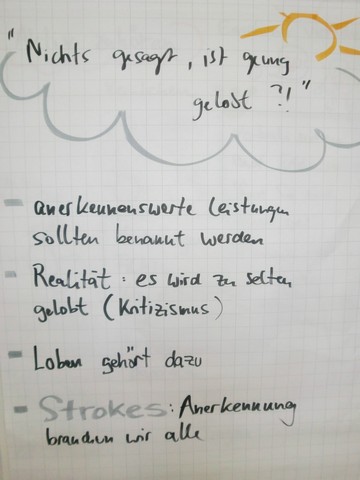 "Nichts gesagt, ist genug
gelobt ?!"
- anerkennenswerte Leistungen
sollten benannt werden
- Realität: es wird zu selten
gelobt (Kritizismus)
- Loben gehört dazu
- Strokes: Anerkennung
brauchen wir alle